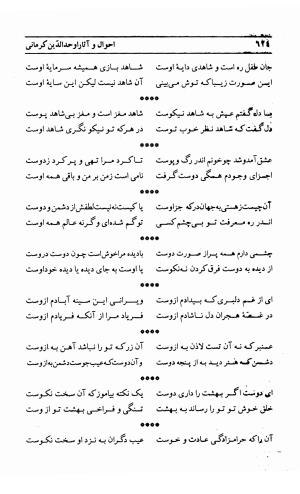 ۶۲۴ احوال و آثار اوحدالدّین کرمانی
جان طفل ره است و شاهدی دایهٔ اوست شاهد بازی همیشه سرمایهٔ اوست
این صورت زیبا که توش می‌بینی آن شاهد نیست لیکن این سایهٔ اوست
****
با دل گفتم عیش به شاهد نیکوست شاهد مغز است و مغز بی‌شاهد پوست
دل گفت که شاهد نظر خوب توست در هر که تو نیکو نگری شاهد اوست
****
عشق آمد و شد چو خونم اندر رگ و پوست تا کرد مرا تهی و پر کرد ز دوست
اجزای وجودم همگی دوست گرفت نامی است ز من بر من و باقی همه اوست
****
آن چیست ز هستی به جهان در که جز اوست یا کیست نه نیست لطفش از دشمن و دوست
در ره معرفت تو بی‌چشم کسی تو گم شده‌ای و گرنه عالم همه اوست
****
چشمی دارم همه پر از صورت دوست با دیده مرا خوش است چون دوست دروست
از دیده به دوست فرق کردن نه نکوست یا اوست به جای دیده یا دیده خود اوست
****
ای از غم دلبری که بیدادم ازوست ویرانی این سینهٔ آبادم ازوست
در غصّهٔ هجران دل ناشادم ازوست فریاد مرا از آنکه فریادم ازوست
****
عمنبر که نه آن تست لادن به ازوست آن زر که تو را نباشد آهن به ازوست
دشمن که هنر دید به از پنجه دوست وآن دوست که عیب جوست دشمن به ازوست
****
ای دوست اگر بهشت را داری دوست یک نکته بیاموز که آن سخت نکوست
خلق خوش تو تو را رساند به بهشت تنگی و فراخی بهشت تو از وست
****
آن را که حرامزادگی عادت و خوست عیب دگران به نزد او سخت نکوست